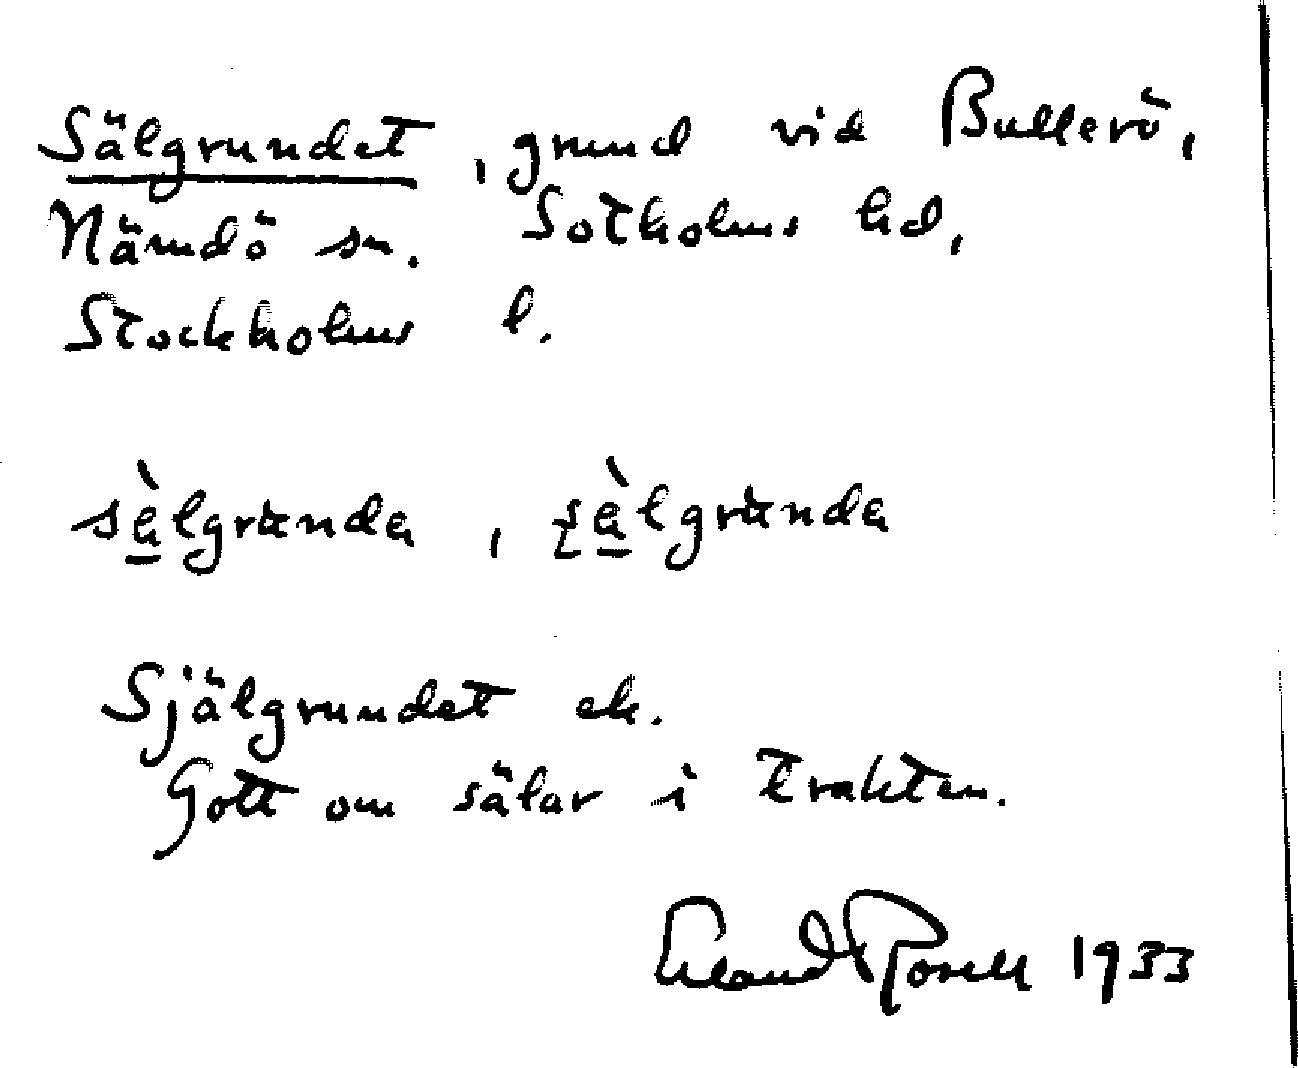 Sälgrundet, grund vid Bullerö,
Nämdö sn. Sotholms hd,
Stockholms l.
sä̀lgrunda, sä̀lgrunda
Själgrundet ek.
Gott om sälar i trakten.
Erland Rosell 1933